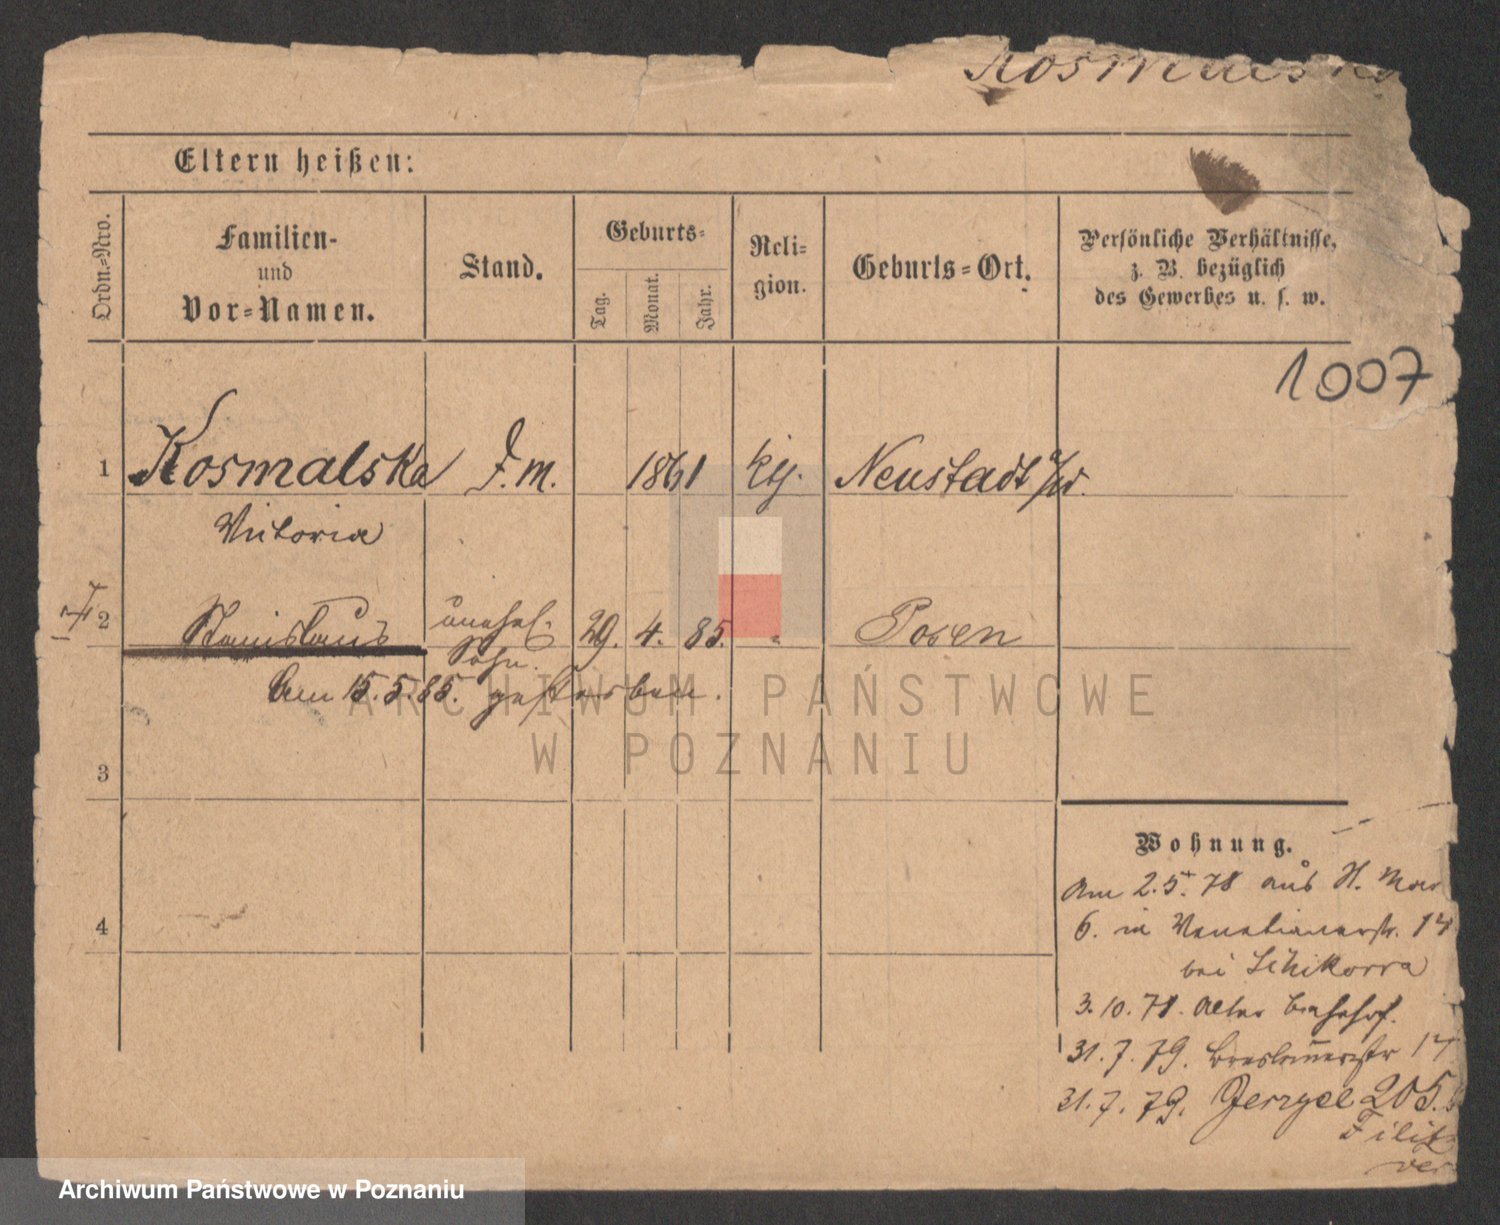 Kosmalska
Eltern heißen:
Ordn.=Nro.
Familien-
und
Vor=Namen.
Stand.
Geburts=
Tag.
Monat.
Jahr.
Reli=
gion.
Geburts=Ort.
Persönliche Verhältnisse,
z. B. bezüglich
des Gewerbes u. s. w.
1007
1 Kosmalska D.M. 1861 kth. Neustadt a/W.
Victoria
2 Stanislaus unehel. 29. 4. 85. " Posen
Sohn.
Am 15.5.85. gestorben.
3
4
Wohnung.
Am 2.5.78 aus H.
6. in Venetianerstr. 14
bei Schikorra
3.10.78. Alter Bahnhof.
31.7.79. Breslauerstr 17
31.7.79. Jerzyce 205.
ARCHIWUM PAŃSTWOWE
W POZNANIU
Archiwum Państwowe w Poznaniu